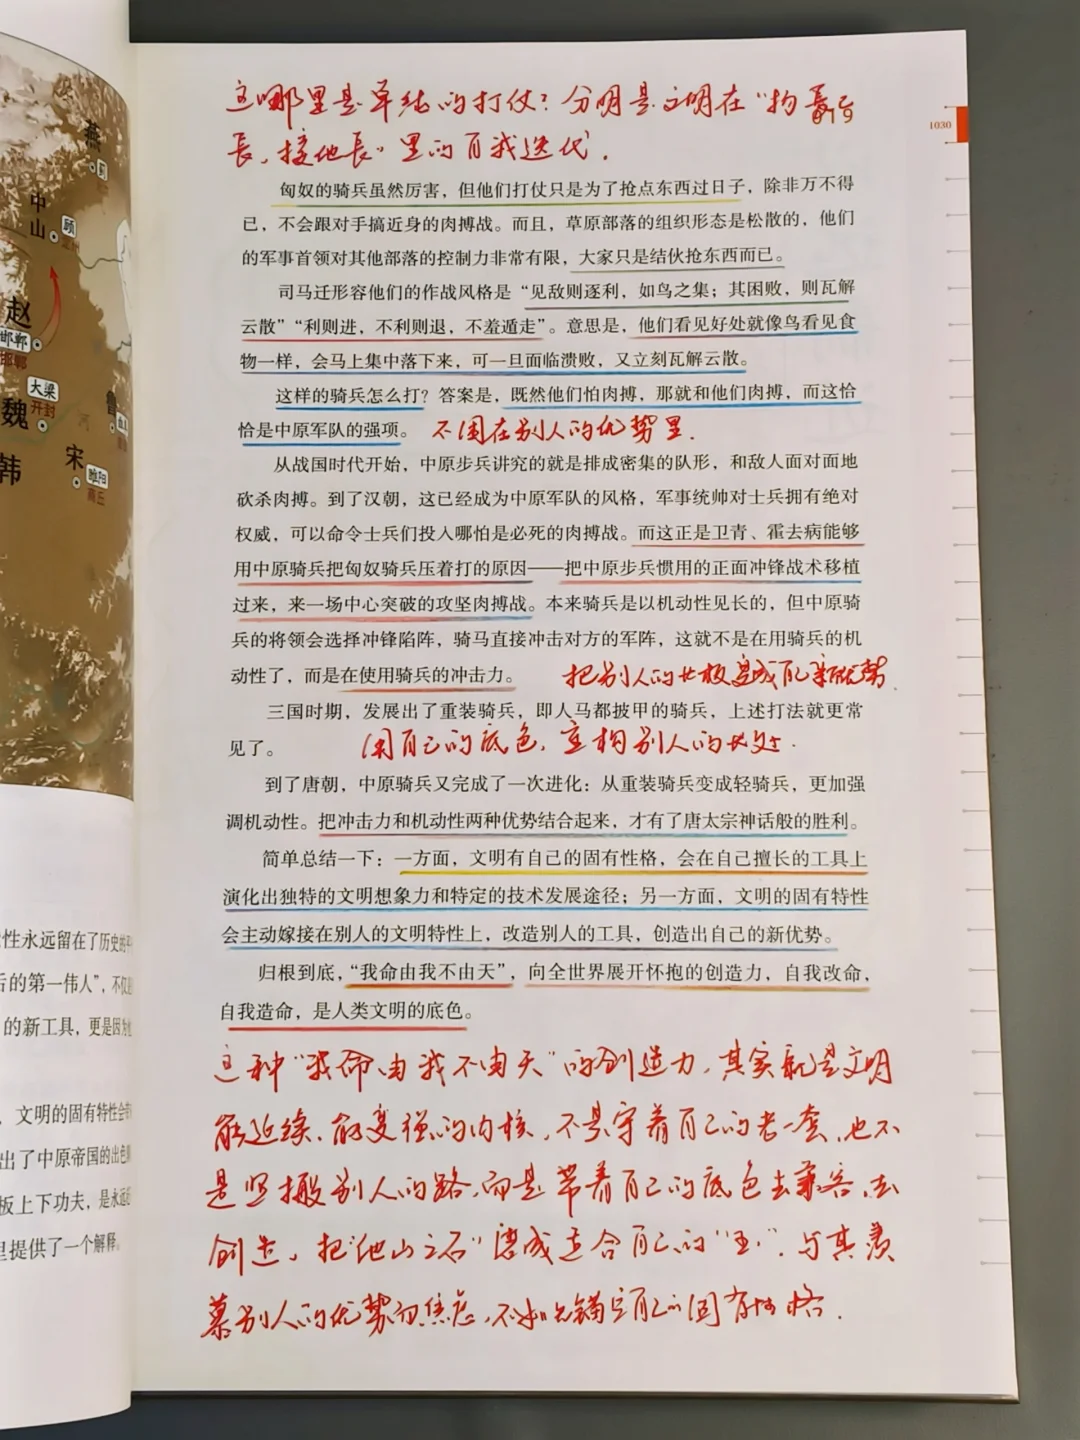 燕
蓟
中山
顾
赵
邯郸
邯郸
大梁
魏
开封
河
鲁
宋
睢阳
商丘
韩
性永远留在了历史的
后的第一伟人”,不仅
的新工具,更是因为
,文明的固有特性会
出了中原帝国的出色
板上下功夫,是永远
里提供了一个解释。
1030
这哪里是单纯的打仗?分明是文明在“扬长
长,接地长”里的自我迭代.
匈奴的骑兵虽然厉害,但他们打仗只是为了抢点东西过日子,除非万不得
已,不会跟对手搞近身的肉搏战。而且,草原部落的组织形态是松散的,他们
的军事首领对其他部落的控制力非常有限,大家只是结伙抢东西而已。
司马迁形容他们的作战风格是“见敌则逐利,如鸟之集;其困败,则瓦解
云散”“利则进,不利则退,不羞遁走”。意思是,他们看见好处就像鸟看见食
物一样,会马上集中落下来,可一旦面临溃败,又立刻瓦解云散。
这样的骑兵怎么打?答案是,既然他们怕肉搏,那就和他们肉搏,而这恰
恰是中原军队的强项。 不困在别人的优势里.
从战国时代开始,中原步兵讲究的就是排成密集的队形,和敌人面对面地
砍杀肉搏。到了汉朝,这已经成为中原军队的风格,军事统帅对士兵拥有绝对
权威,可以命令士兵们投入哪怕是必死的肉搏战。而这正是卫青、霍去病能够
用中原骑兵把匈奴骑兵压着打的原因——把中原步兵惯用的正面冲锋战术移植
过来,来一场中心突破的攻坚肉搏战。本来骑兵是以机动性见长的,但中原骑
兵的将领会选择冲锋陷阵,骑马直接冲击对方的军阵,这就不是在用骑兵的机
动性了,而是在使用骑兵的冲击力。 把别人的长板变成自己新优势.
三国时期,发展出了重装骑兵,即人马都披甲的骑兵,上述打法就更常
见了。 用自己的底色,变相别人的长处.
到了唐朝,中原骑兵又完成了一次进化:从重装骑兵变成轻骑兵,更加强
调机动性。把冲击力和机动性两种优势结合起来,才有了唐太宗神话般的胜利。
简单总结一下:一方面,文明有自己的固有性格,会在自己擅长的工具上
演化出独特的文明想象力和特定的技术发展途径;另一方面,文明的固有特性
会主动嫁接在别人的文明特性上,改造别人的工具,创造出自己的新优势。
归根到底,“我命由我不由天”,向全世界展开怀抱的创造力,自我改命,
自我造命,是人类文明的底色。
这种“我命由我不由天”的创造力,其实就是文明
能延续、能变强的内核,不是守着自己的老一套,也不
是照搬别人的路,而是带着自己的底色去兼容、去
创造,把“他山之石”磨成适合自己的“玉”.与其羡
慕别人的优势而焦虑,不如先锚定自己的固有性格.